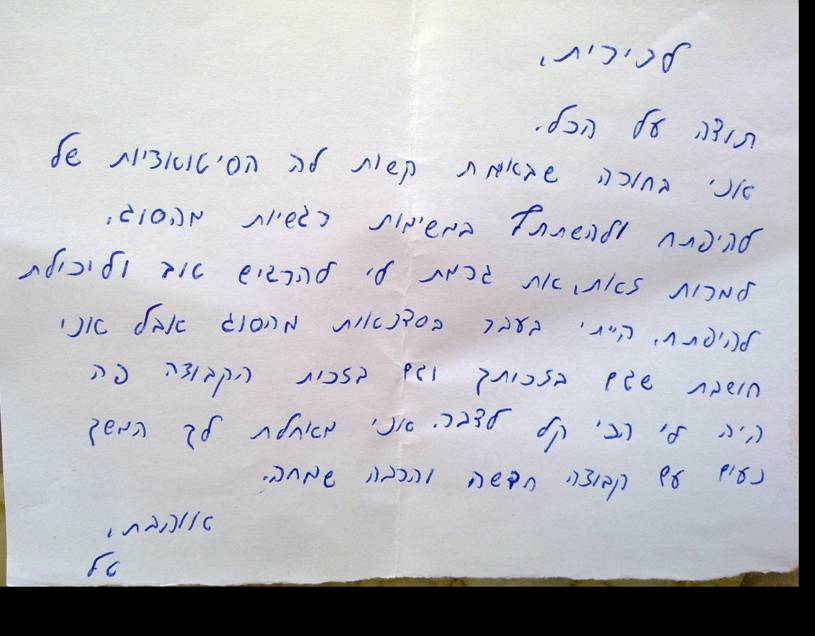 לבירית,
תודה על הכל.
אני בחורה שבאמת קשות לה הסיטואציות של
להיפתח ולהשתתף במשימות רגשיות מהסוג.
למרות זאת, את גרמת לי להרגיש טוב וליכולת
להיפתח. הייתי בעבר בסדנאות מהסוג אבל אני
חושבת שגם בזכותך וגם בזכות הקבוצה פה
היה לי הכי קל לדבר. אני מאחלת לך המשך
נעים עם קבוצה חדשה והרבה שמחה.
אוהבת,
טל